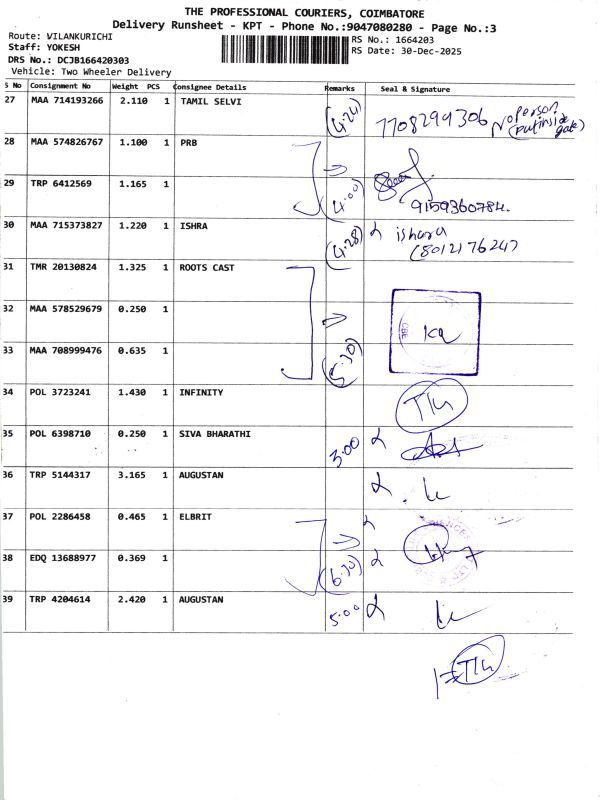 THE PROFESSIONAL COURIERS, COIMBATORE
Delivery Runsheet - KPT - Phone No.:9047080280 - Page No.:3
Route: VILANKURICHI
Staff: YOKESH
DRS No.: DCJB166420303
Vehicle: Two Wheeler Delivery
RS No.: 1664203
RS Date: 30-Dec-2025
S No Consignment No Weight PCS Consignee Details Remarks Seal & Signature
27 MAA 714193266 2.110 1 TAMIL SELVI (4:24) 7708299306 No person (put inside gate)
28 MAA 574826767 1.100 1 PRB
29 TRP 6412569 1.165 1 (4:00) 9159360784.
30 MAA 715373827 1.220 1 ISHRA (4:28) ishara
(801217624)
31 TMR 20130824 1.325 1 ROOTS CAST
32 MAA 578529679 0.250 1 CBE
33 MAA 708999476 0.635 1 (5:30)
34 POL 3723241 1.430 1 INFINITY
35 POL 6398710 0.250 1 SIVA BHARATHI 3:00
36 TRP 5144317 3.165 1 AUGUSTAN
37 POL 2286458 0.465 1 ELBRIT
38 EDQ 13688977 0.369 1 (6:30)
39 TRP 4204614 2.420 1 AUGUSTAN 5:00